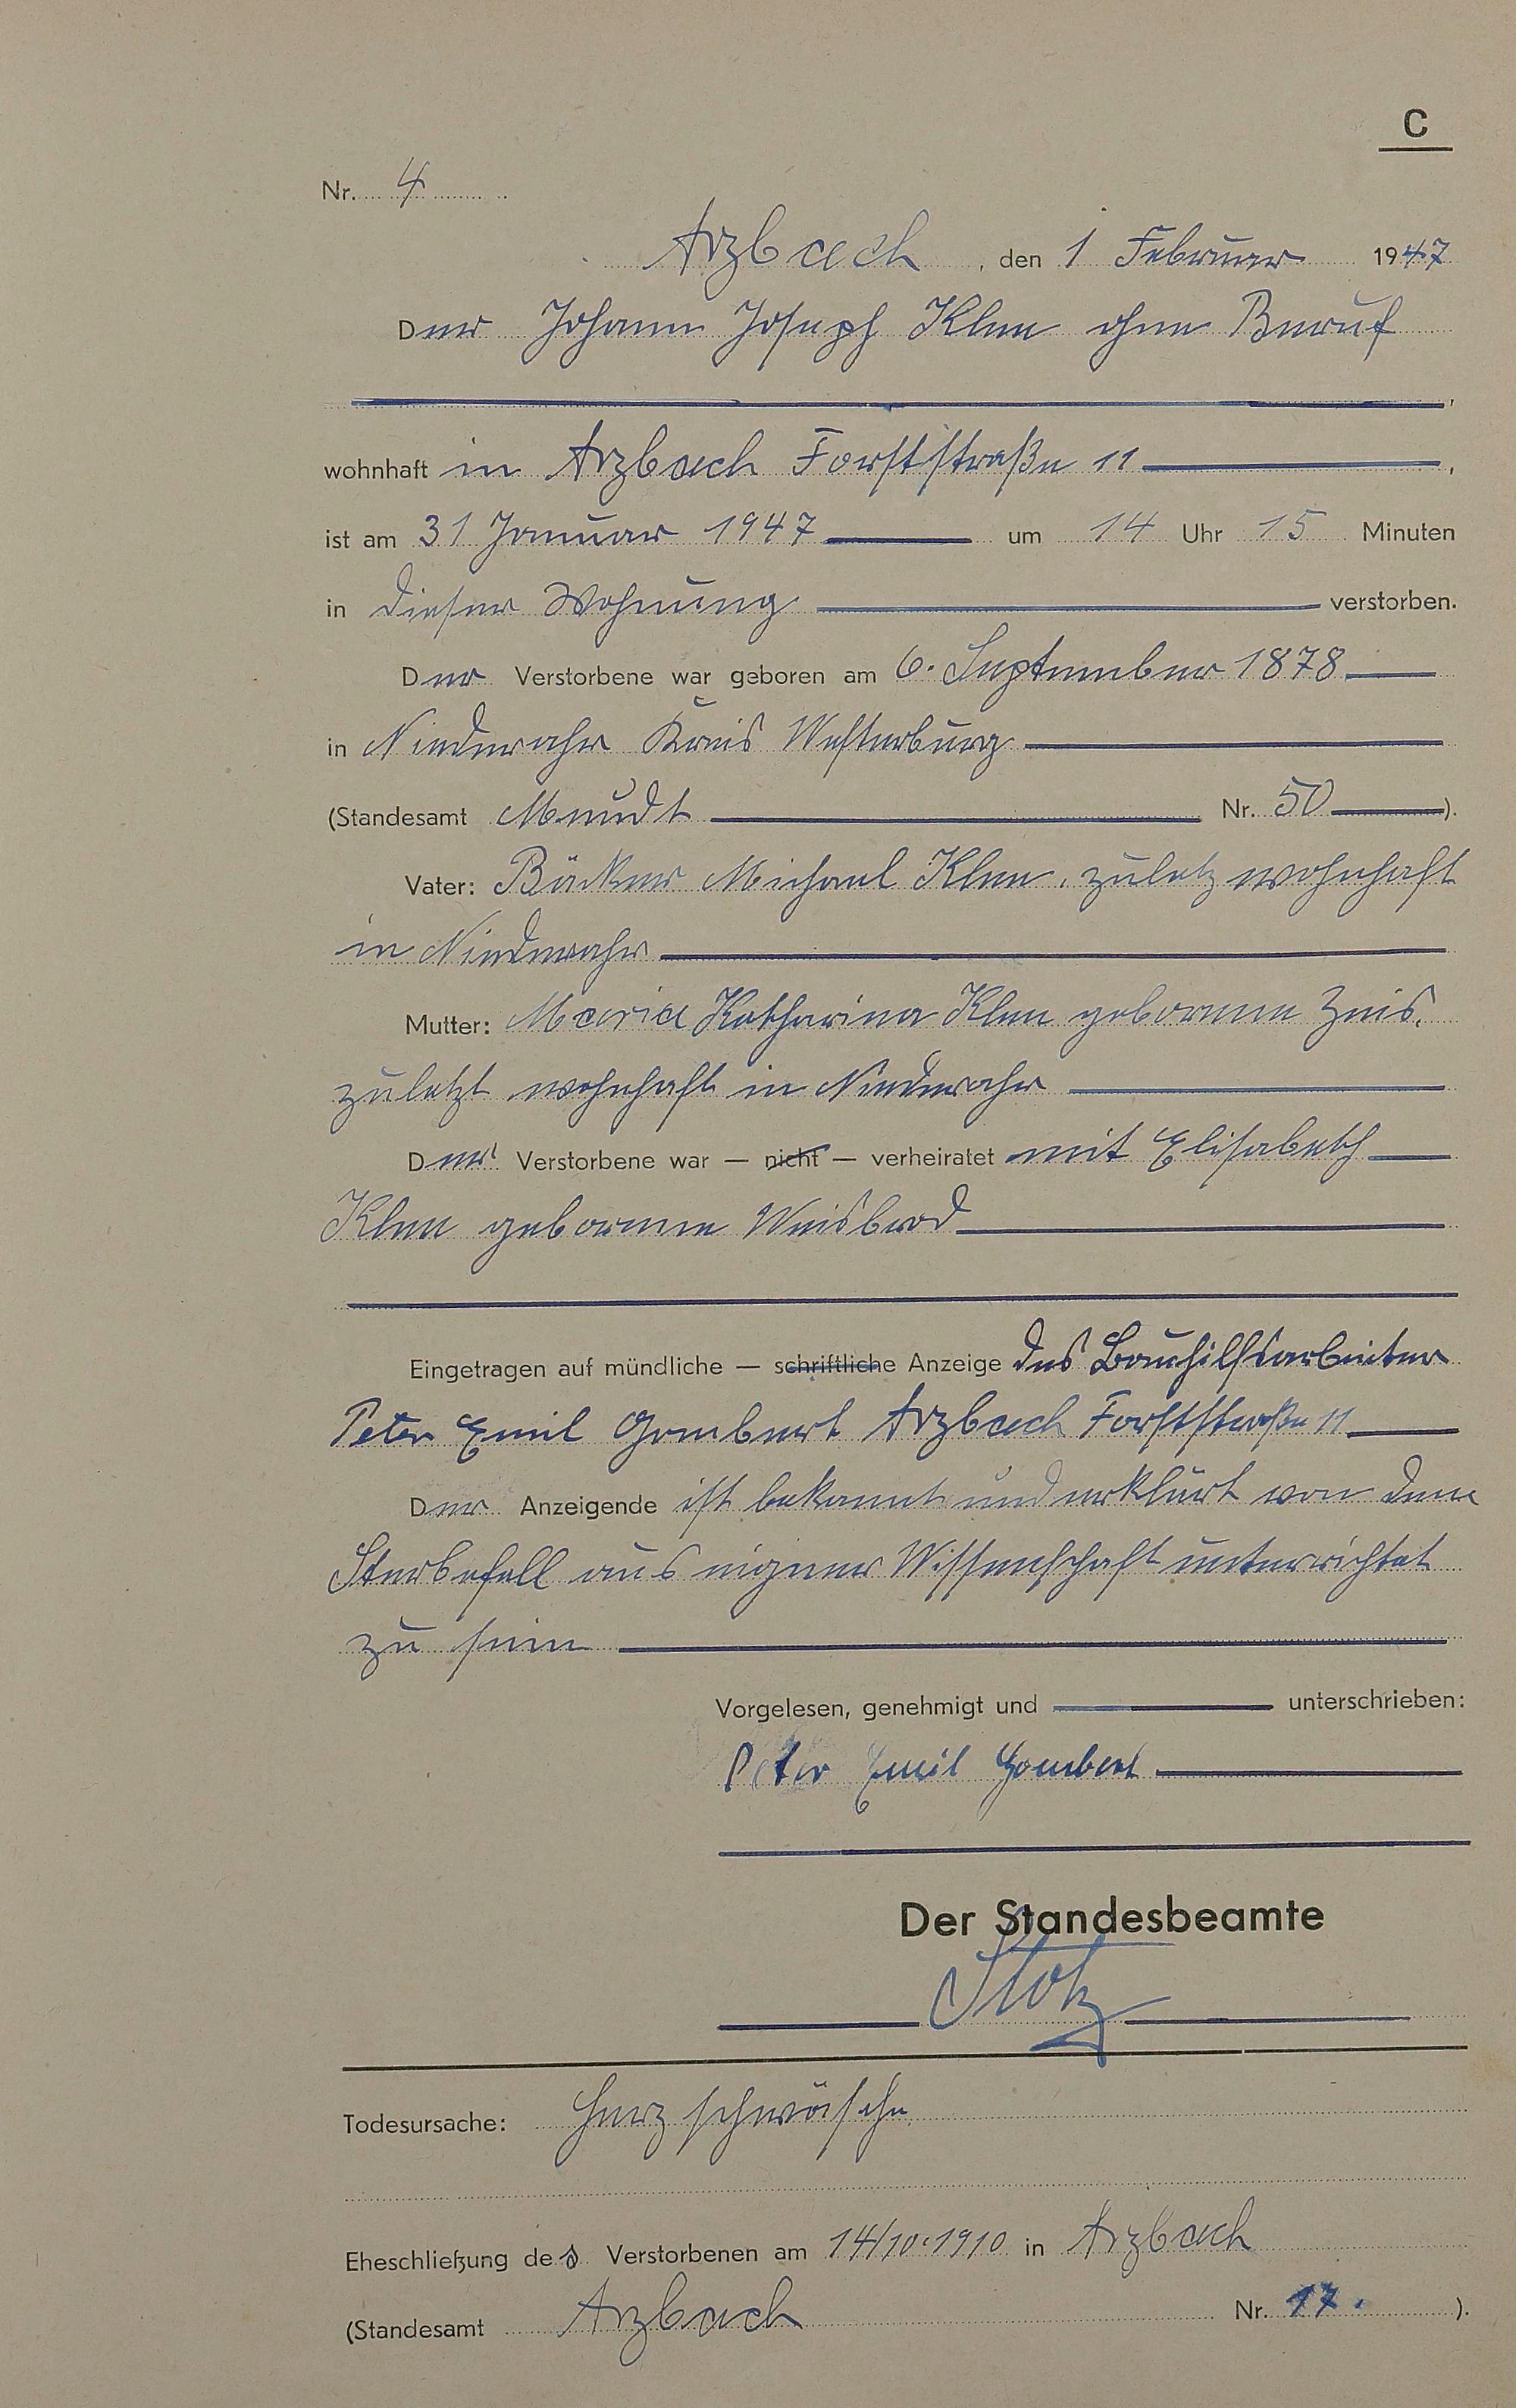 C
Nr. 4
Arzbach, den 1 Februar 1947
Der Johann Joseph Klee ohne Beruf
wohnhaft in Arzbach Forststraße 11,
ist am 31 Januar 1947 um 14 Uhr 15 Minuten
in dieser Wohnung verstorben.
Der Verstorbene war geboren am 6. September 1878
in Niederahr Kreis Westerburg
(Standesamt Meudt Nr. 50).
Vater: Bäcker Michael Klee, zuletz wohnhaft
in Niederahr
Mutter: Maria Katharina Klee geborene Zeis,
zuletzt wohnhaft in Niederahr
Der Verstorbene war — nicht — verheiratet mit Elisabeth
Klee geborene Weisbrod
Eingetragen auf mündliche — schriftliche Anzeige des Bauhilfsarbeiter
Peter Emil Gombert Arzbach Forststraße 11
Der Anzeigende ist bekannt und erklärt von dem
Sterbefall aus eigener Wissenschaft unterrichtet
zu sein
Vorgelesen, genehmigt und unterschrieben:
Peter Emil Gombert
Der Standesbeamte
Stotz
Todesursache: Herzschwäsche
Eheschließung des Verstorbenen am 14/10.1910 in Arzbach
(Standesamt Arzbach Nr. 17. ).